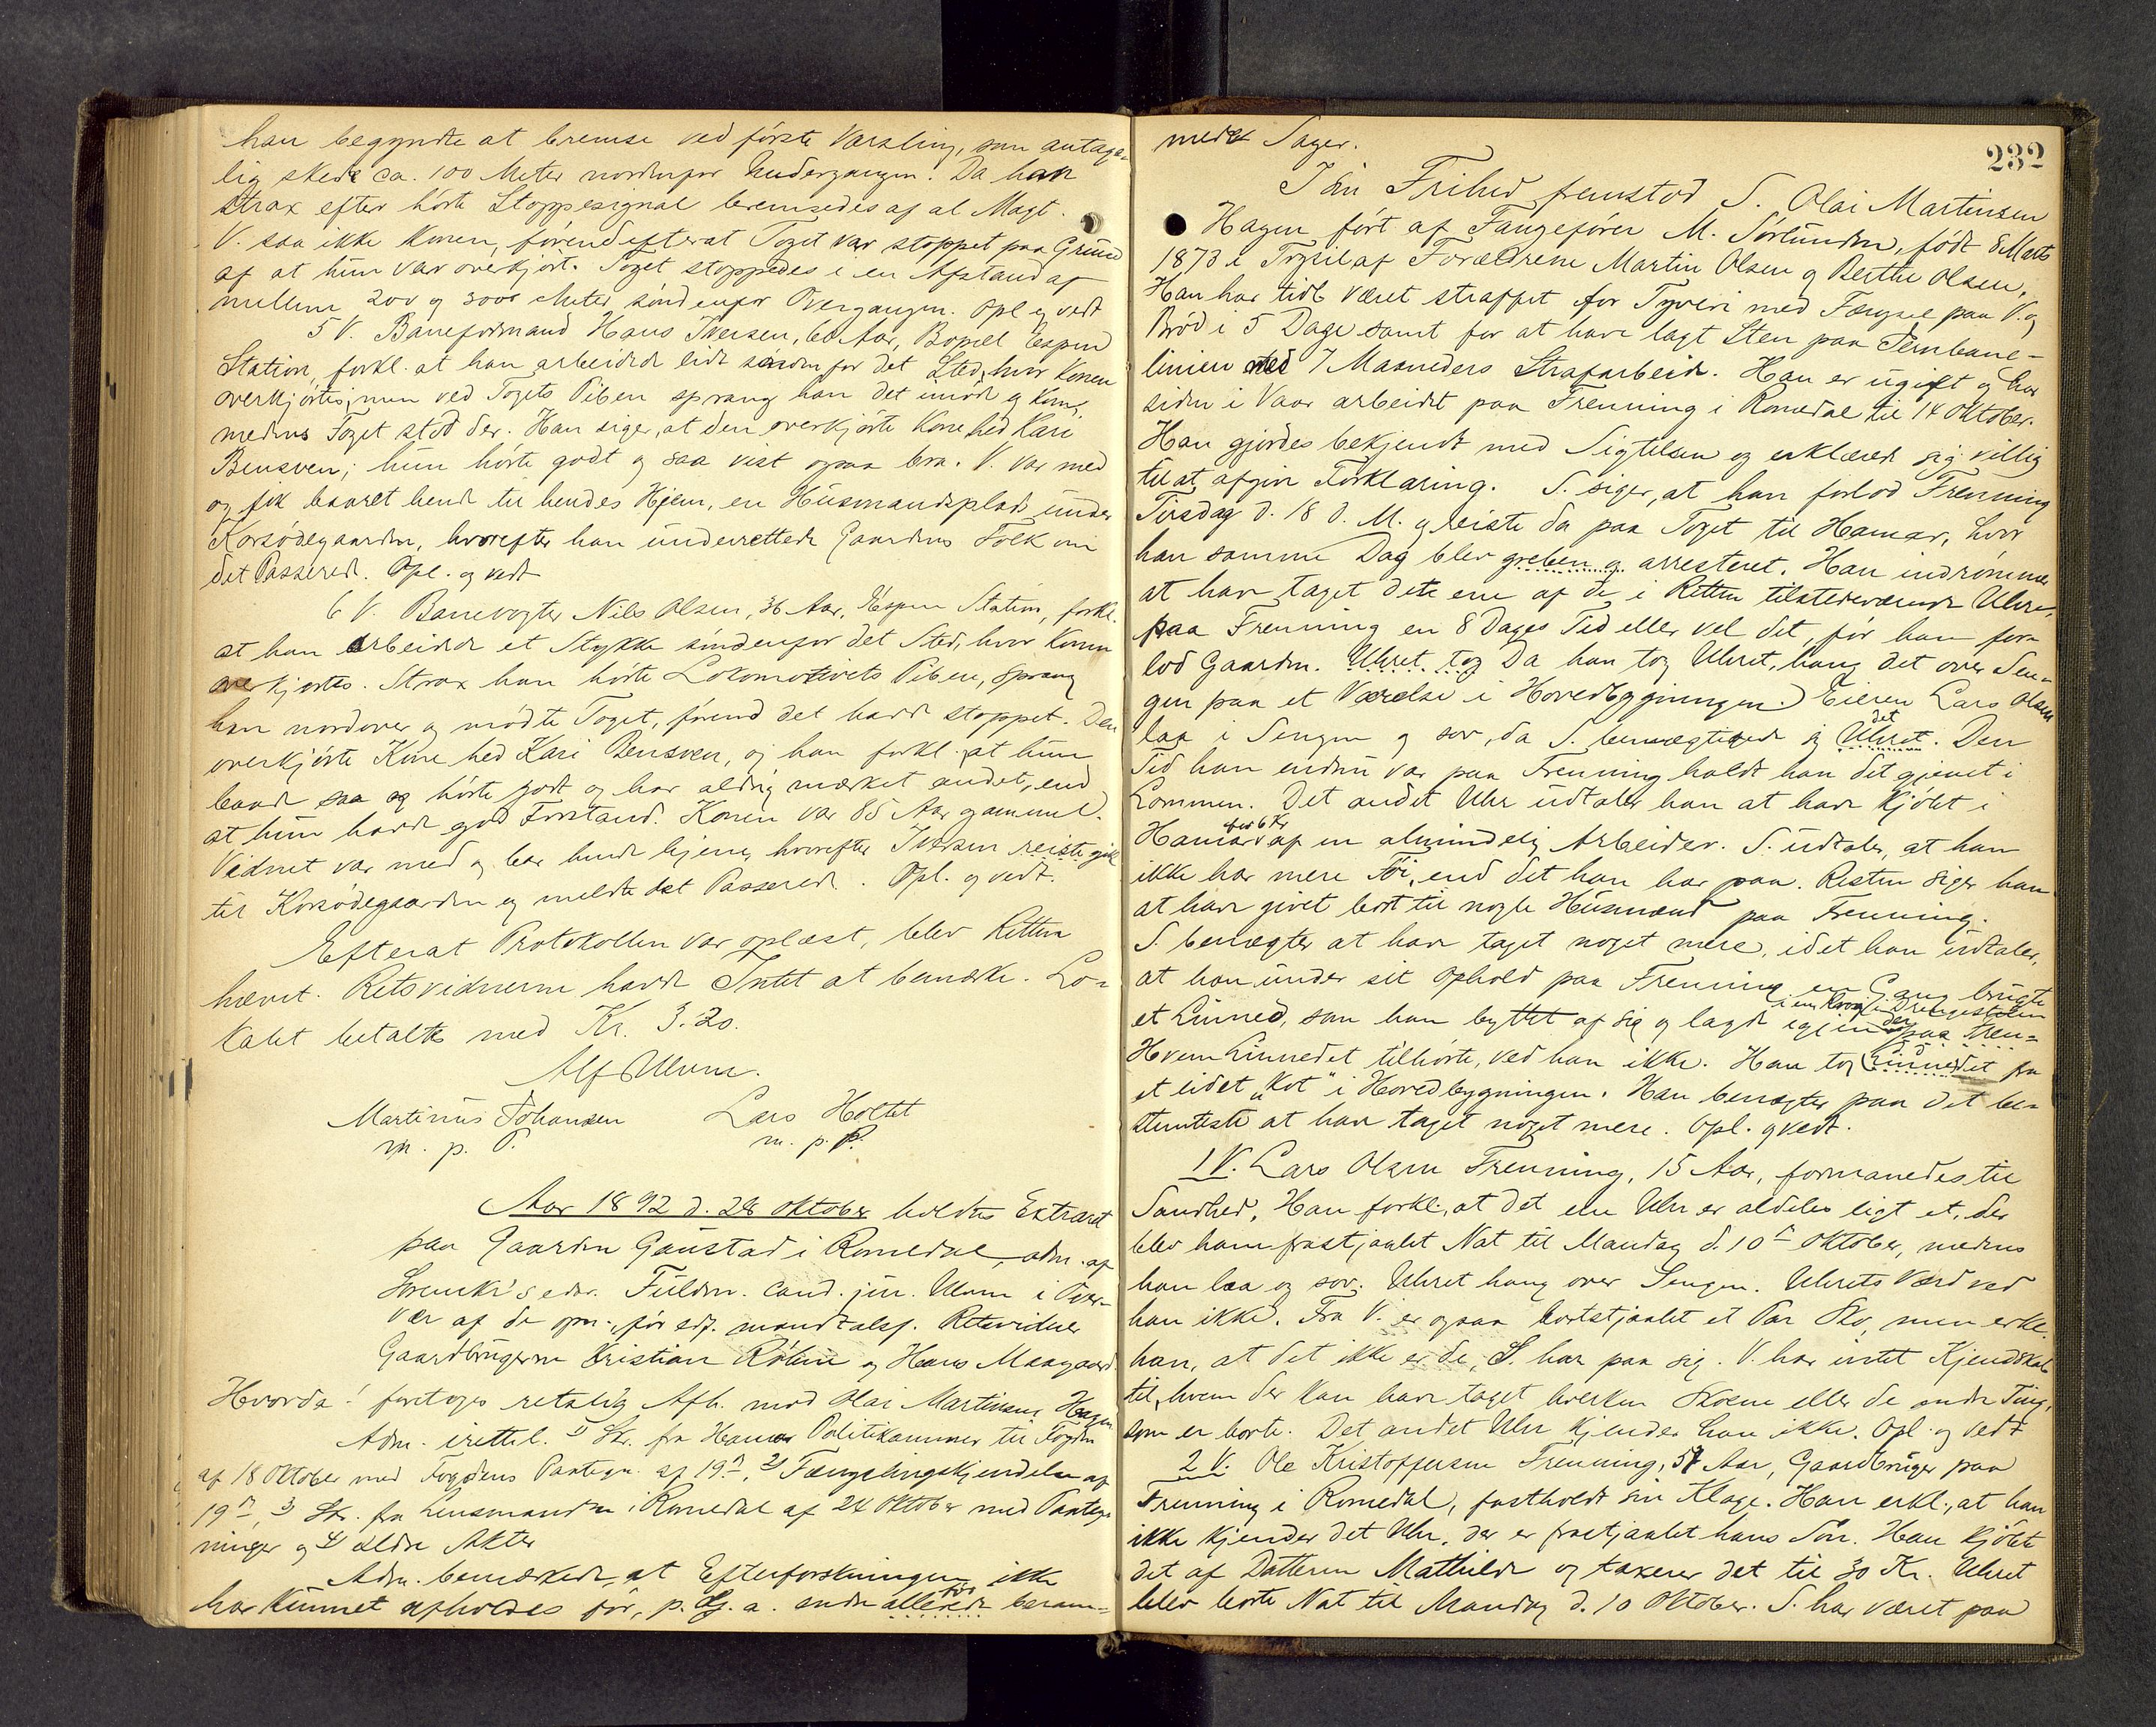 han begyndte at bremse ved første Varsling, som antage-
lig skede ca. 100 Meter nordenfor Undergangen. Da han
strax efter hørte Stoppesignal bremsedes af al Magt.
V. saa ikke Konen, førend efterat Toget var stoppet paa Grund
af at hun var overkjørt. Toget stoppedes i en Afstand af
mellem 200 og 300 Meter søndenfor Overgangen. Opl og vedt
5 V. Baneformand Hans Iversen, 60 Aar, Bopæl Espen
Station, forkl. at han arbeidede lidt søndenfor det Sted, hvor Konen
overkjørtes, men ved Togets Piben sprang han det imøde og kom,
medens Toget stod der. Han siger, at den overkjørte Kone hed Kari
Bensven; hun hørte godt og saa vist ogsaa bra. V. var med
og fik baaret hende til hendes Hjem, en Husmandsplads under
Korsødegaarden, hvorefter han underrettede Gaardens Folk om
det Passerede. Opl. og vedt
6 V. Banevogter Nils Olsen, 36 Aar, Espen Station, forkl.
at han arbeidede et Stykke søndenfor det Sted, hvor Konen
overkjørtes. Strax han hørte Lokomotivets Piben, sprang
han nordover og mødte Toget, førend det havde stoppet. Den
overkjørte Kone hed Kari Bensven, og han forkl. at hun
baade saa og hørte godt og har aldrig mærket andet, end
at hun havde god Forstand. Konen var 85 Aar gammel.
Vidnet var med og bar hende hjem, hvorefter Iversen reiste gik
til Korsødegaarden og meldte det Passerede. Opl. og vedt.
Efterat Protokollen var oplæst, blev Retten
hævet. Retsvidnerne havde Intet at bemærke. Lo-
kalet betaltes med Kr. 3.20.
Alf Ulvum.
Martinus Johansen Lars Holtet
m. p. P. m. p. P.
Aar 1892 d. 28 Oktober holdtes Extraret
paa Gaarden Gaustad i Romedal, adm. af
Srenskr's edsv. Fuldm. cand. jur. Ulvum i Over-
vær af de opn., før edf. mandtalsf. Retsvidner
Gaardbrugerne Kristian Røhne og Hans Maagaard
Hvorda! foretoges retslig Afh. mod Olai Martinsen Hagen
Adm. irettel. 1) Skr. fra Hamar Politikammer til Fogden
af 18 Oktober med Fogdens Paategn. af 19de, 2) Fængslingskjendelse af
19de, 3) Skr. fra Lensmanden i Romedal af 24 Oktober med Paateg-
ninger og 4) ældre Akter
Adm. bemærkede, at Efterforskningen ikke
har kunnet afholdes før, p. Gr. a. andre allerede før beram-
232
mede Sager.
I sin Frihed fremstod S. Olai Martinsen
Hagen ført af Fangefører M. Sørlunden, født 8 Marts
1873 i Trysil af Forældrene Martin Olsen og Berthe Olsen.
Han har tidl været straffet for Tyveri med Fængsel paa V. og
Brød i 5 Dage samt for at have lagt Sten paa Jernbane-
linien med 7 Maaneders Strafarbeide. Han er ugift og har
siden i Vaar arbeidet paa Frenning i Romedal til 14 Oktober.
Han gjordes bekjendt med Sigtelsen og erklærede sig villig
til at afgive Forklaring. S. siger, at han forlod Frenning
Tirsdag d. 18 d. M. og reiste da paa Toget til Hamar, hvor
han samme Dag blev greben og arresteret. Han indrømmer
at have taget dete ene af de i Retten tilstedeværende Uhre,
paa Frenning en 8 Dages Tid eller vel det, før han for-
lod Gaarden. Uhret tog Da han tog Uhret, hang det over Sen-
gen paa et Værelse i Hovedbygningen. Eieren Lars Olsen
laa i Sengen og sov, da S. bemægtigede sig det Uhret. Den
Tid han endnu var paa Frenning holdt han det gjemt i
Lommen. Det andet Uhr udtaler han at have kjøbt i
Hamar for 6 Kr af en almindelig Arbeider. S. udtaler, at han
ikke har mere Tøi, end det han har paa. Resten siger han
at have givet bort til nogle Husmænd paa Frenning.
S. benægter at have taget noget mere, idet han udtaler,
at han under sit Ophold paa Frenning en Gang brugte
et Linned, som han byttet af sig og lagde igjen i en Krog i Drengestuen paa Fren-
Hvem Linnedet tilhørte, ved han ikke. Han tog Linnedet fra
et lidet „Kot" i Hovedbygningen. Han benægter paa det be-
stemteste at have taget noget mere. Opl. og vedt.
1 V. Lars Olsen Frenning, 15 Aar, formanedes til
Sandhed. Han forkl., at det ene Uhr er aldeles ligt et, der
blev ham frastjaalet Nat til Mandag d. 10de Oktober, medens
han laa og sov. Uhret hang over Sengen. Uhrets Værd ved
han ikke. Fra V. er ogsaa bortstjaalet et Par Sko, men erkl.
han, at det ikke er de, S. har paa sig. V. har intet Kjendskab
til, hvem der kan have taget hverken Skoene eller de andre Ting,
som er borte. Det andet Uhr kjender han ikke. Opl. og vedt
2 V. Ole Kristoffersen Frenning, 57 Aar, Gaardbruger paa
Frenning i Romedal, fastholdt sin Klage. Han erkl., at han
ikke kjender det Uhr, der er frastjaalet hans Søn. Han kjøbte
det af Datteren Mathilde og taxerer det til 30 Kr. Uhret
blev borte Nat til Mandag d. 10 Oktober. S. har været paa